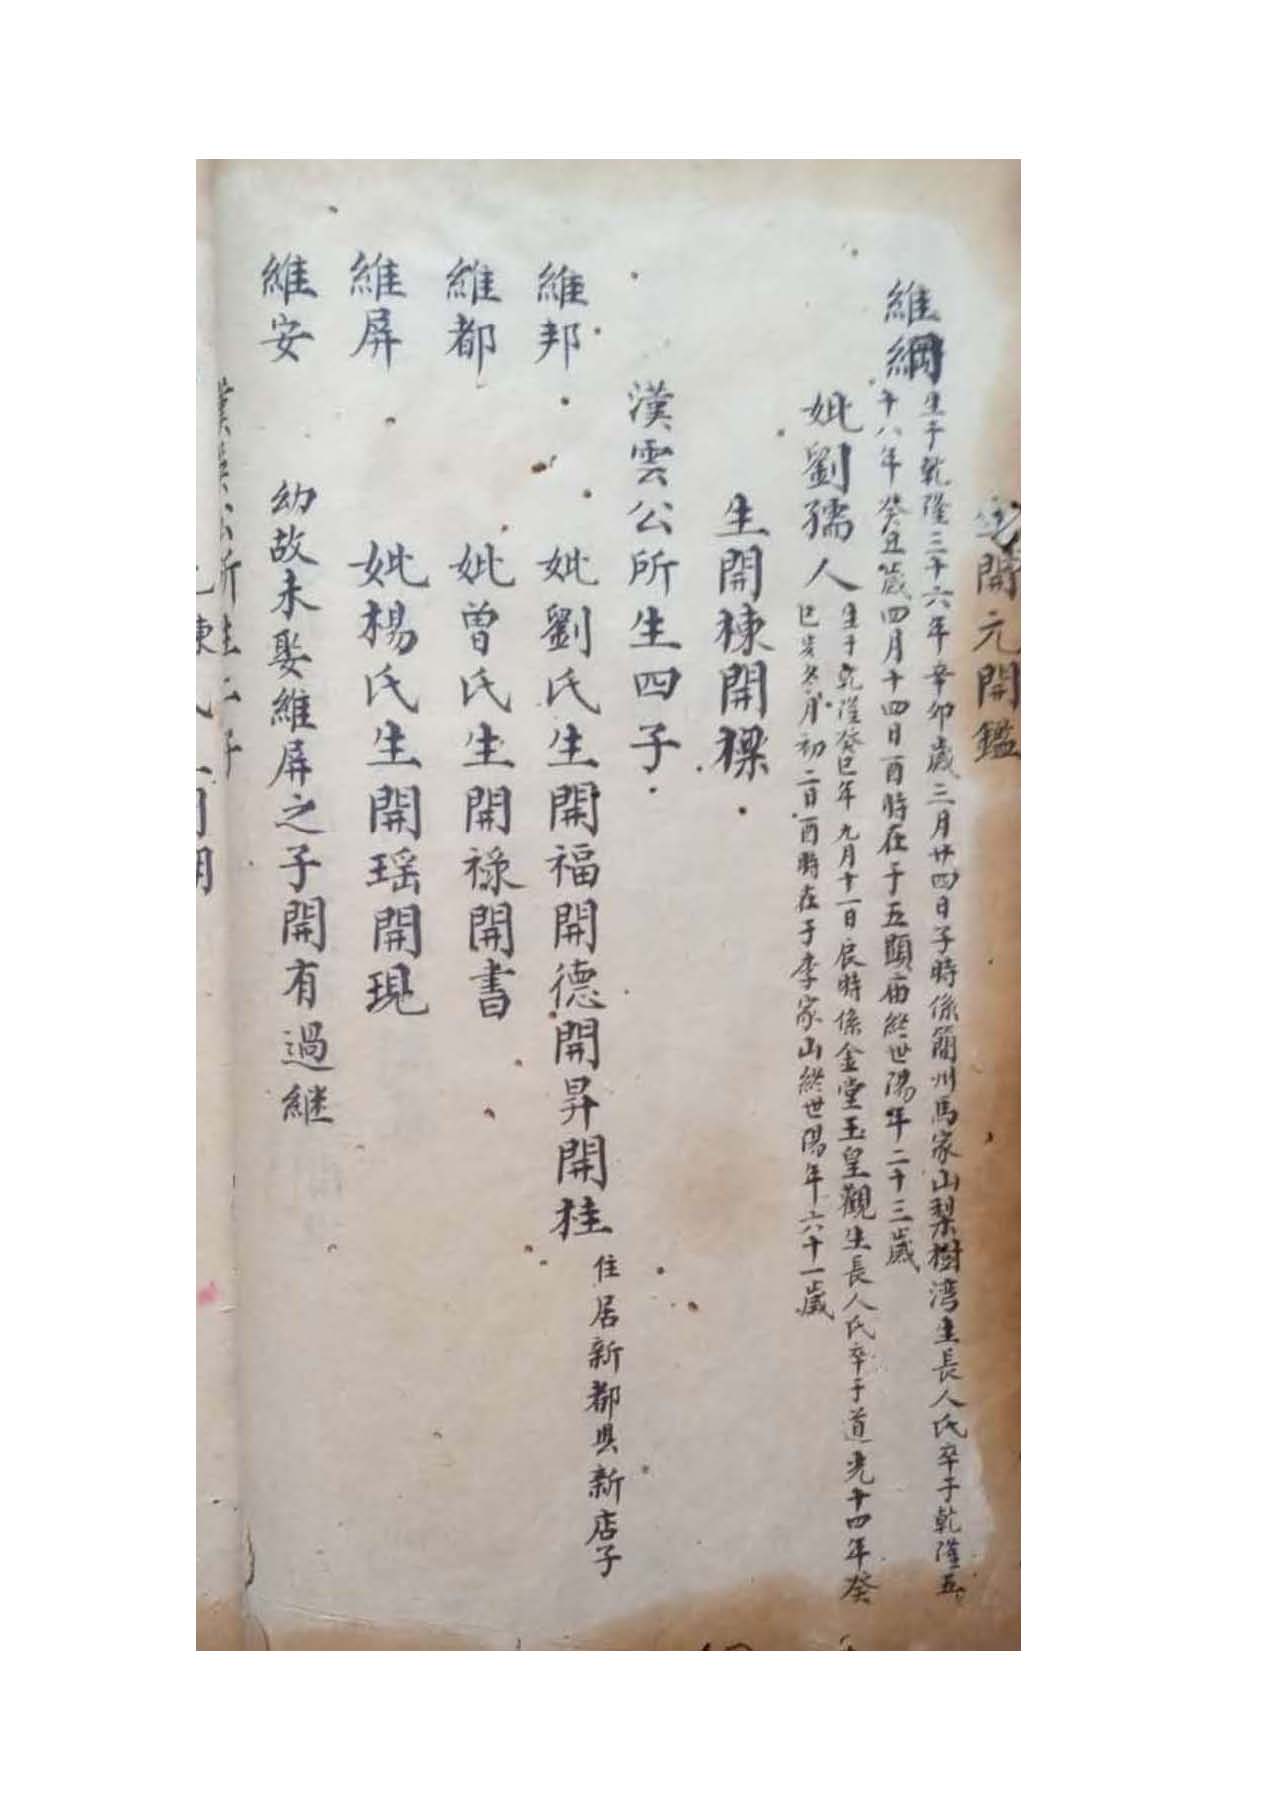 開元開鑑
維綱
生于乾隆三十六年辛卯歲三月廿四日子時係簡州馬家山梨樹湾生長人氏卒于乾隆五
十八年癸丑歲四月十四日酉時在于五顕庙終世陽年二十三歲
妣劉孺人
生于乾隆癸巳年九月十一日辰時係金堂玉皇觀生長人氏卒于道光十四年癸
巳歲冬月初二日酉時在于李家山終世陽年六十一歲
生開棟開樑
漢雲公所生四子
維邦 妣劉氏生開福開德開昇開桂
住居新都縣新店子
維都 妣曾氏生開祿開書
維屏 妣楊氏生開瑶開現
維安 幼故未娶維屏之子開有過継